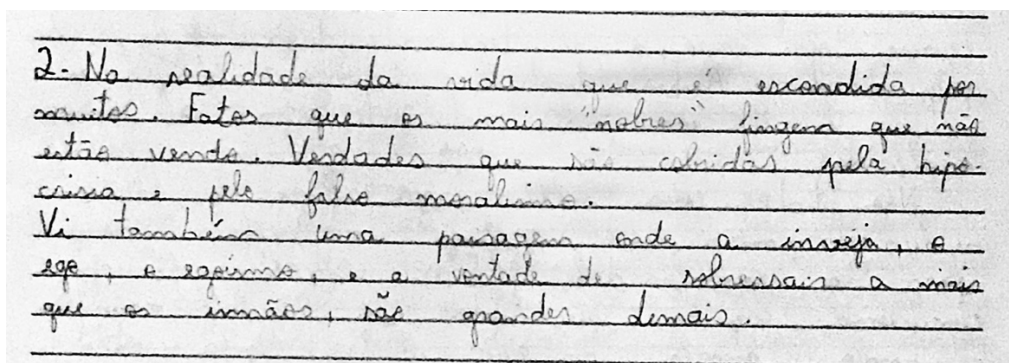 2- Na realidade da vida que é escondida por
muitos. Fatos que os mais "nobres" fingem que não
estão vendo. Verdades que são cobridas pela hipo-
crisia e pelo falso moralismo.
Vi também uma paisagem onde a inveja, o
ego, o egoísmo, e a vontade de sobressair a mais
que os irmãos, são grandes demais.